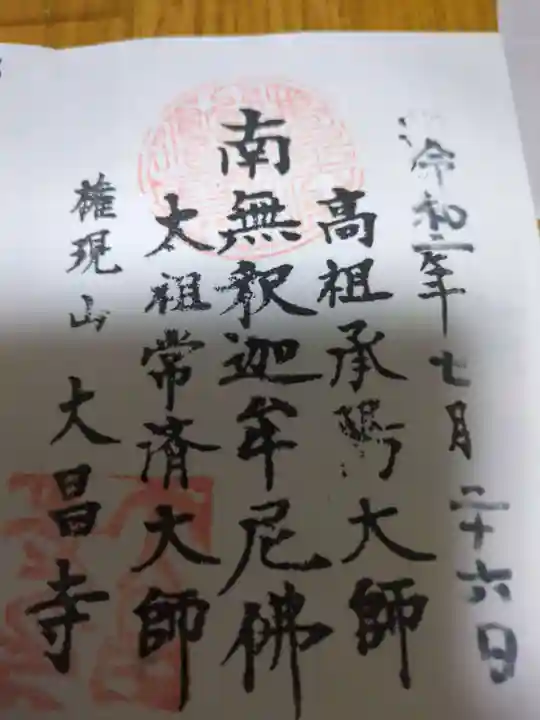 令和二年七月二十六日
高祖承陽大師
南無釈迦牟尼佛
太祖常済大師
権現山 大昌寺